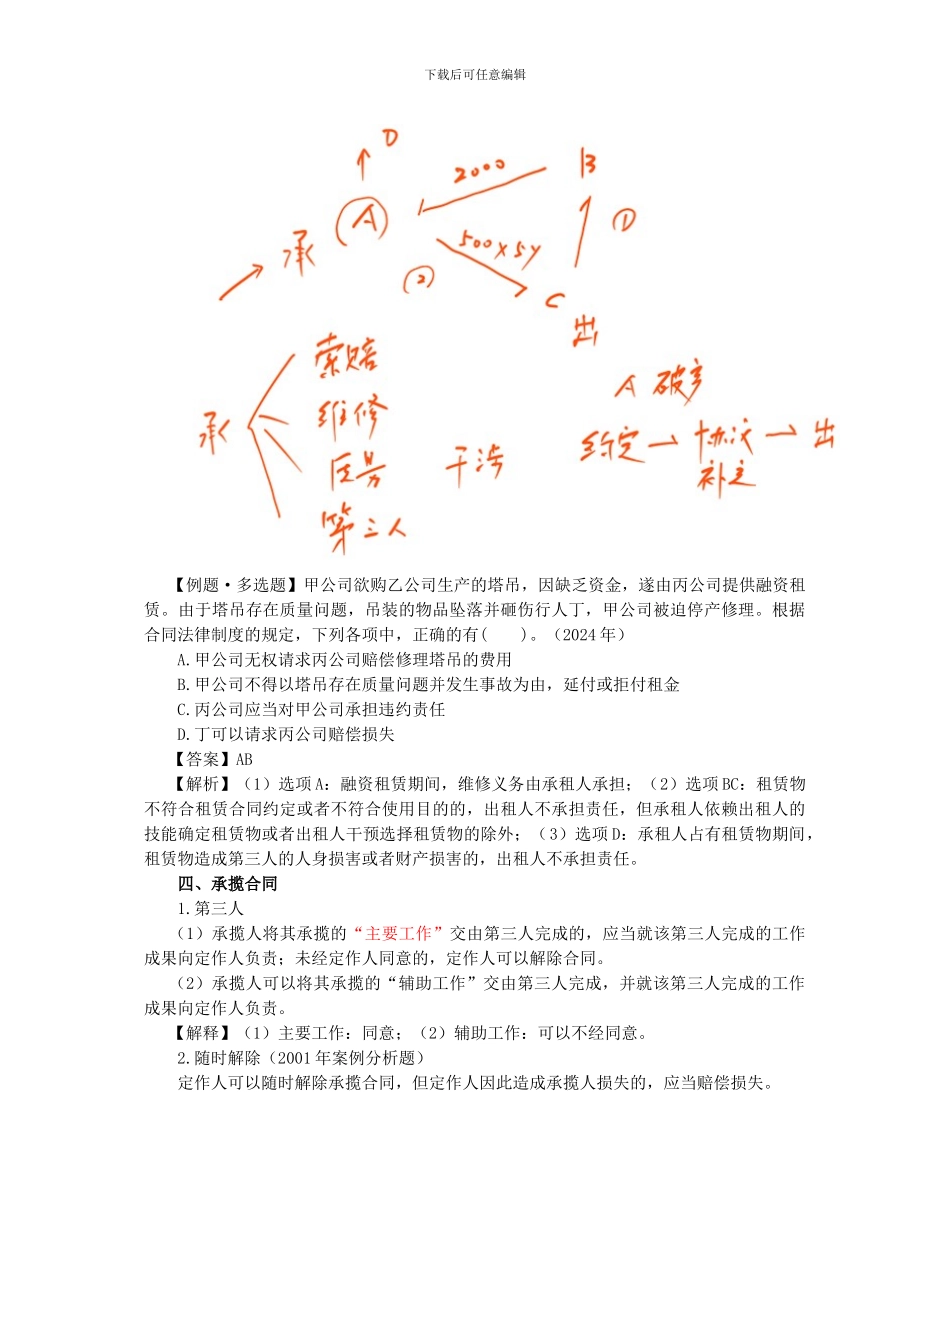 下载后可任意编辑
D
2000
B
承 A
①
500×5y
②
C
出
索赔
A 破产
承
维修
约定→协议→出
补充
质量
干涉
第三人
【例题·多选题】甲公司欲购乙公司生产的塔吊，因缺乏资金，遂由丙公司提供融资租
赁。由于塔吊存在质量问题，吊装的物品坠落并砸伤行人丁，甲公司被迫停产修理。根据
合同法律制度的规定，下列各项中，正确的有(　　)。（2024 年）
A.甲公司无权请求丙公司赔偿修理塔吊的费用
B.甲公司不得以塔吊存在质量问题并发生事故为由，延付或拒付租金
C.丙公司应当对甲公司承担违约责任
D.丁可以请求丙公司赔偿损失
【答案】AB
【解析】（1）选项 A：融资租赁期间，维修义务由承租人承担；（2）选项 BC：租赁物
不符合租赁合同约定或者不符合使用目的的，出租人不承担责任，但承租人依赖出租人的
技能确定租赁物或者出租人干预选择租赁物的除外；（3）选项 D：承租人占有租赁物期间，
租赁物造成第三人的人身损害或者财产损害的，出租人不承担责任。
四、承揽合同
1.第三人
（1）承揽人将其承揽的“主要工作”交由第三人完成的，应当就该第三人完成的工作
成果向定作人负责；未经定作人同意的，定作人可以解除合同。
（2）承揽人可以将其承揽的“辅助工作”交由第三人完成，并就该第三人完成的工作
成果向定作人负责。
【解释】（1）主要工作：同意；（2）辅助工作：可以不经同意。
2.随时解除（2001 年案例分析题）
定作人可以随时解除承揽合同，但定作人因此造成承揽人损失的，应当赔偿损失。